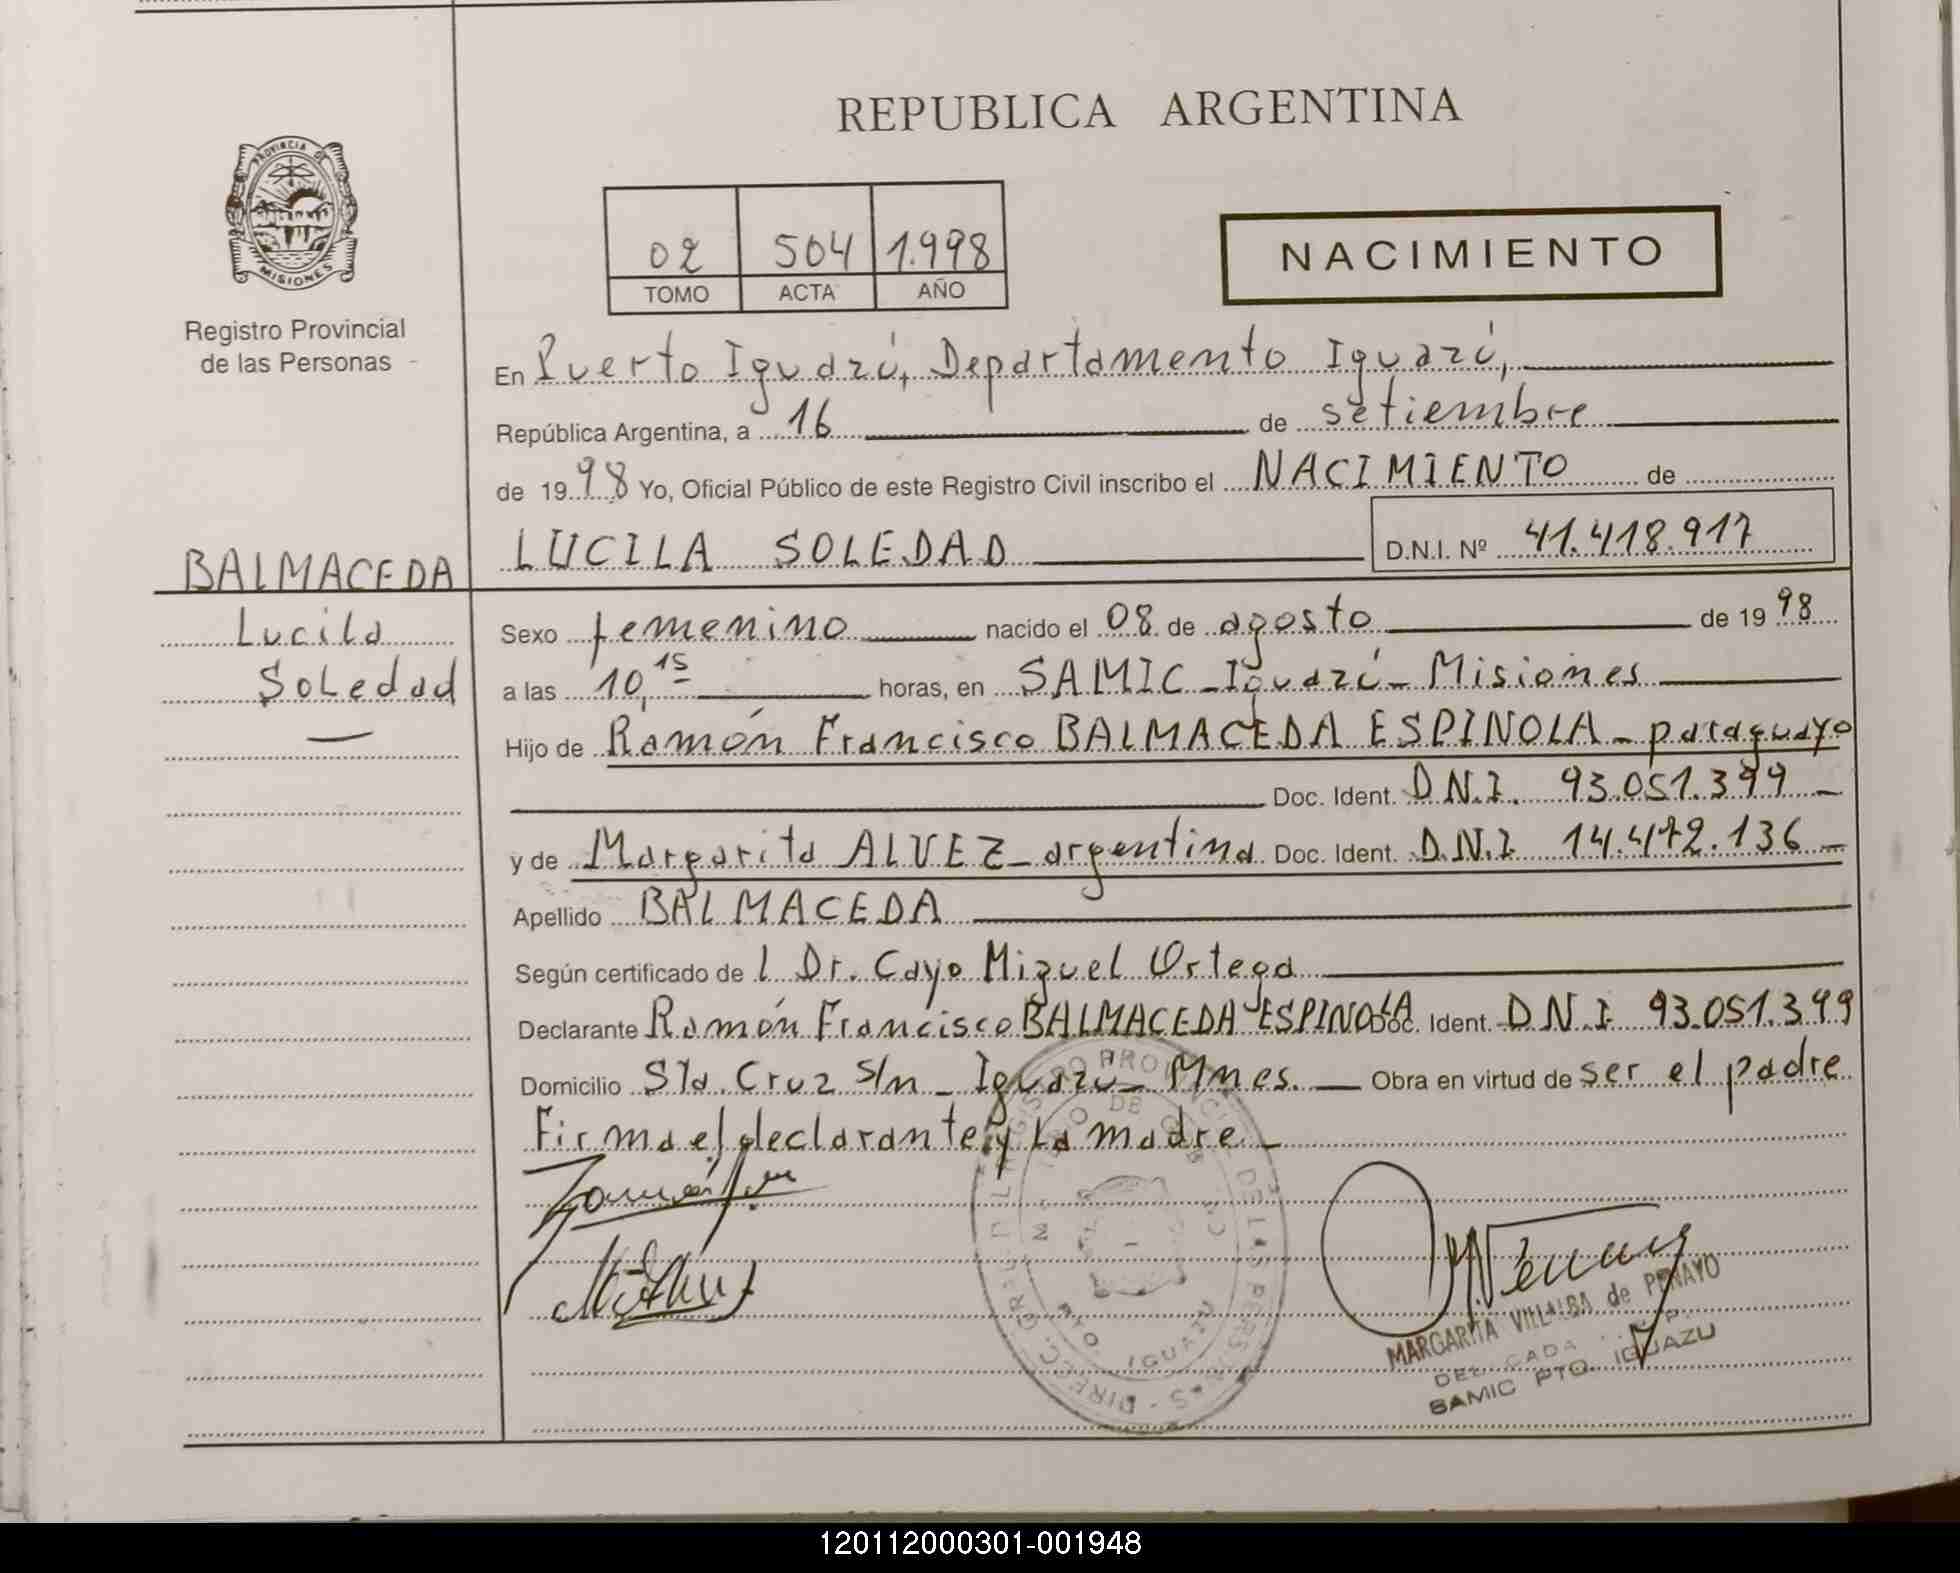 REPUBLICA ARGENTINA
PROVINCIA DE
MISIONES
Registro Provincial
de las Personas
02 504 1.998
TOMO ACTA AÑO
NACIMIENTO
En Puerto Iguazú, Departamento Iguazú,
República Argentina, a 16 de setiembre
de 1998 Yo, Oficial Público de este Registro Civil inscribo el NACIMIENTO de
LUCILA SOLEDAD D.N.I. Nº 41.418.917
BALMACEDA
Lucila
Soledad
Sexo femenino nacido el 08 de agosto de 1998
a las 10,15 horas, en SAMIC - Iguazú - Misiones
Hijo de Ramón Francisco BALMACEDA ESPINOLA - paraguayo
Doc. Ident. D.N.I. 93.051.399 -
y de Margarita ALVEZ - argentina Doc. Ident. D.N.I. 14.472.136 -
Apellido BALMACEDA
Según certificado del Dr. Cayo Miguel Ortega
Declarante Ramón Francisco BALMACEDA ESPINOLA Doc. Ident. D.N.I. 93.051.399
Domicilio Sta. Cruz s/n - Iguazú - Mnes. Obra en virtud de ser el padre
Firma el declarante y la madre -
MARGARITA VILLALBA de PENAYO
SAMIC PTO. IGUAZU
120112000301-001948